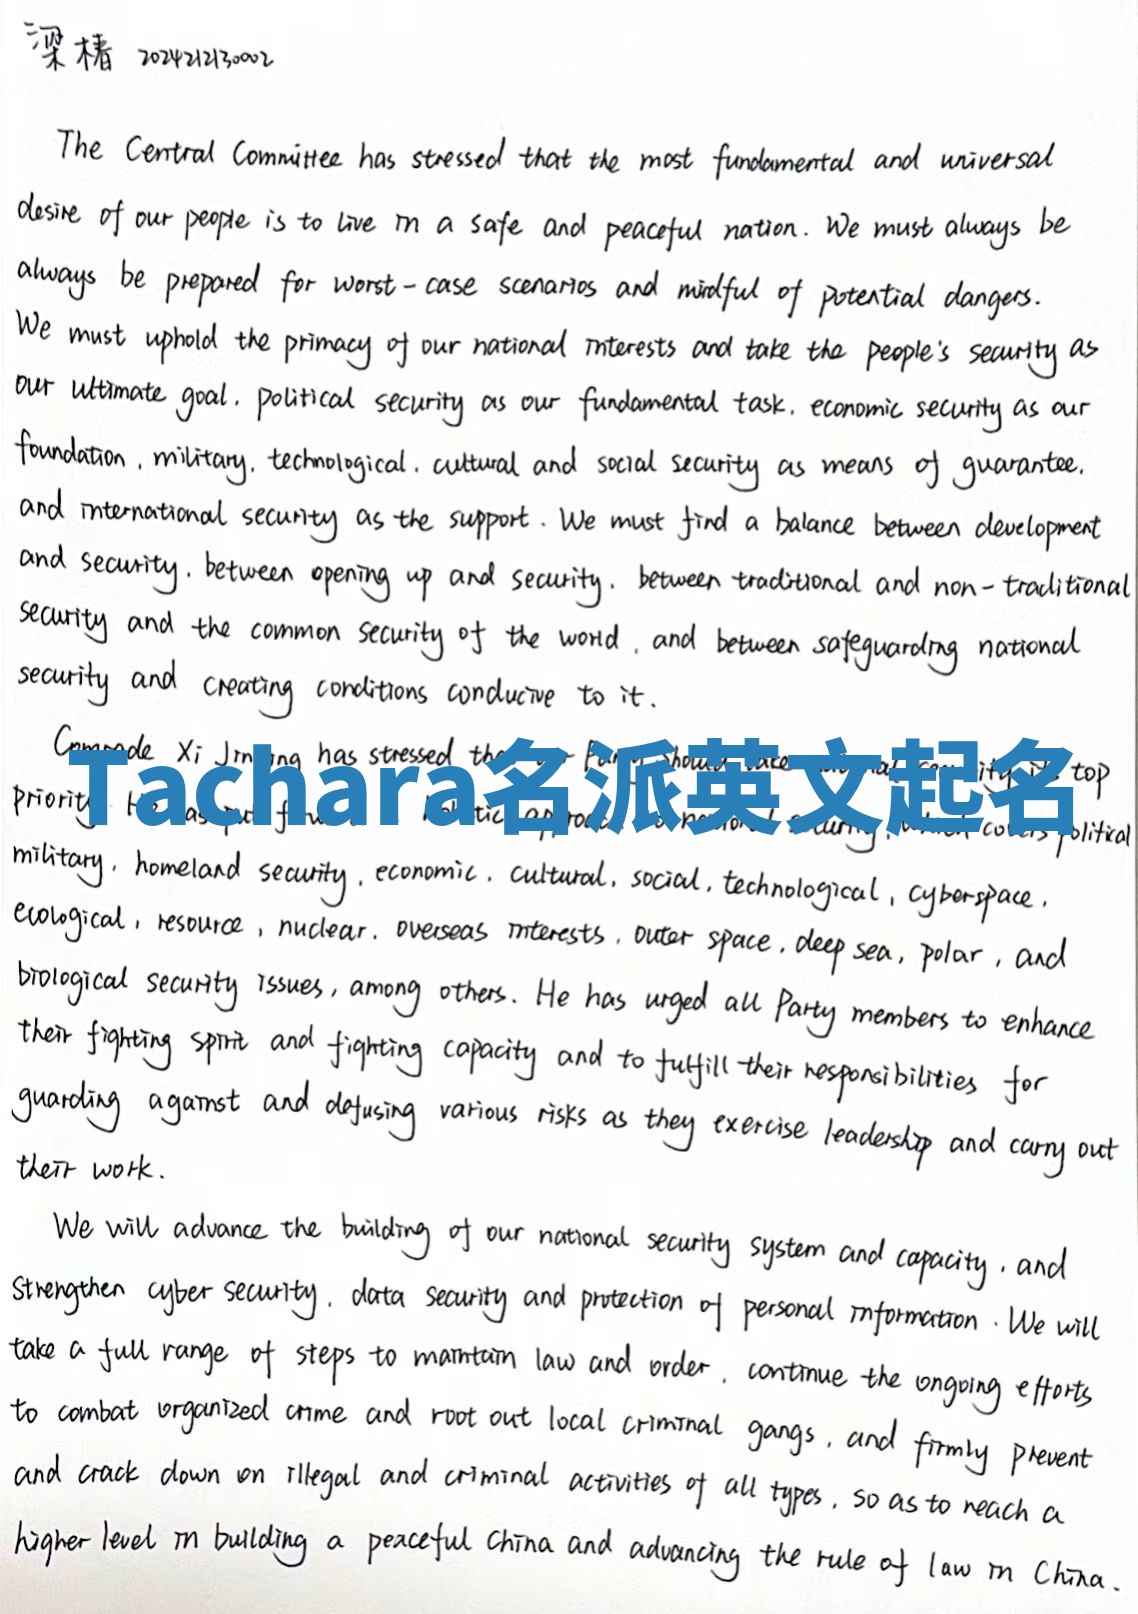 梁椿 2024212130002
The Central Committee has stressed that the most fundamental and universal
desire of our people is to live in a safe and peaceful nation. We must always be
always be prepared for worst-case scenarios and mindful of potential dangers.
We must uphold the primacy of our national interests and take the people's security as
our ultimate goal, political security as our fundamental task, economic security as our
foundation, military, technological, cultural and social security as means of guarantee,
and international security as the support. We must find a balance between development
and security, between opening up and security, between traditional and non-traditional
security and the common security of the world, and between safeguarding national
security and creating conditions conducive to it.
Comrade Xi Jinping has stressed top
Tachara名派英文起名
priority. He political
military, homeland security, economic, cultural, social, technological, cyberspace,
ecological, resource, nuclear, overseas interests, outer space, deep sea, polar, and
biological security issues, among others. He has urged all Party members to enhance
their fighting spirit and fighting capacity and to fulfill their responsibilities for
guarding against and defusing various risks as they exercise leadership and carry out
their work.
We will advance the building of our national security system and capacity, and
strengthen cyber security, data security and protection of personal information. We will
take a full range of steps to maintain law and order, continue the ongoing efforts
to combat organized crime and root out local criminal gangs, and firmly prevent
and crack down on illegal and criminal activities of all types, so as to reach a
higher level in building a peaceful China and advancing the rule of law in China.